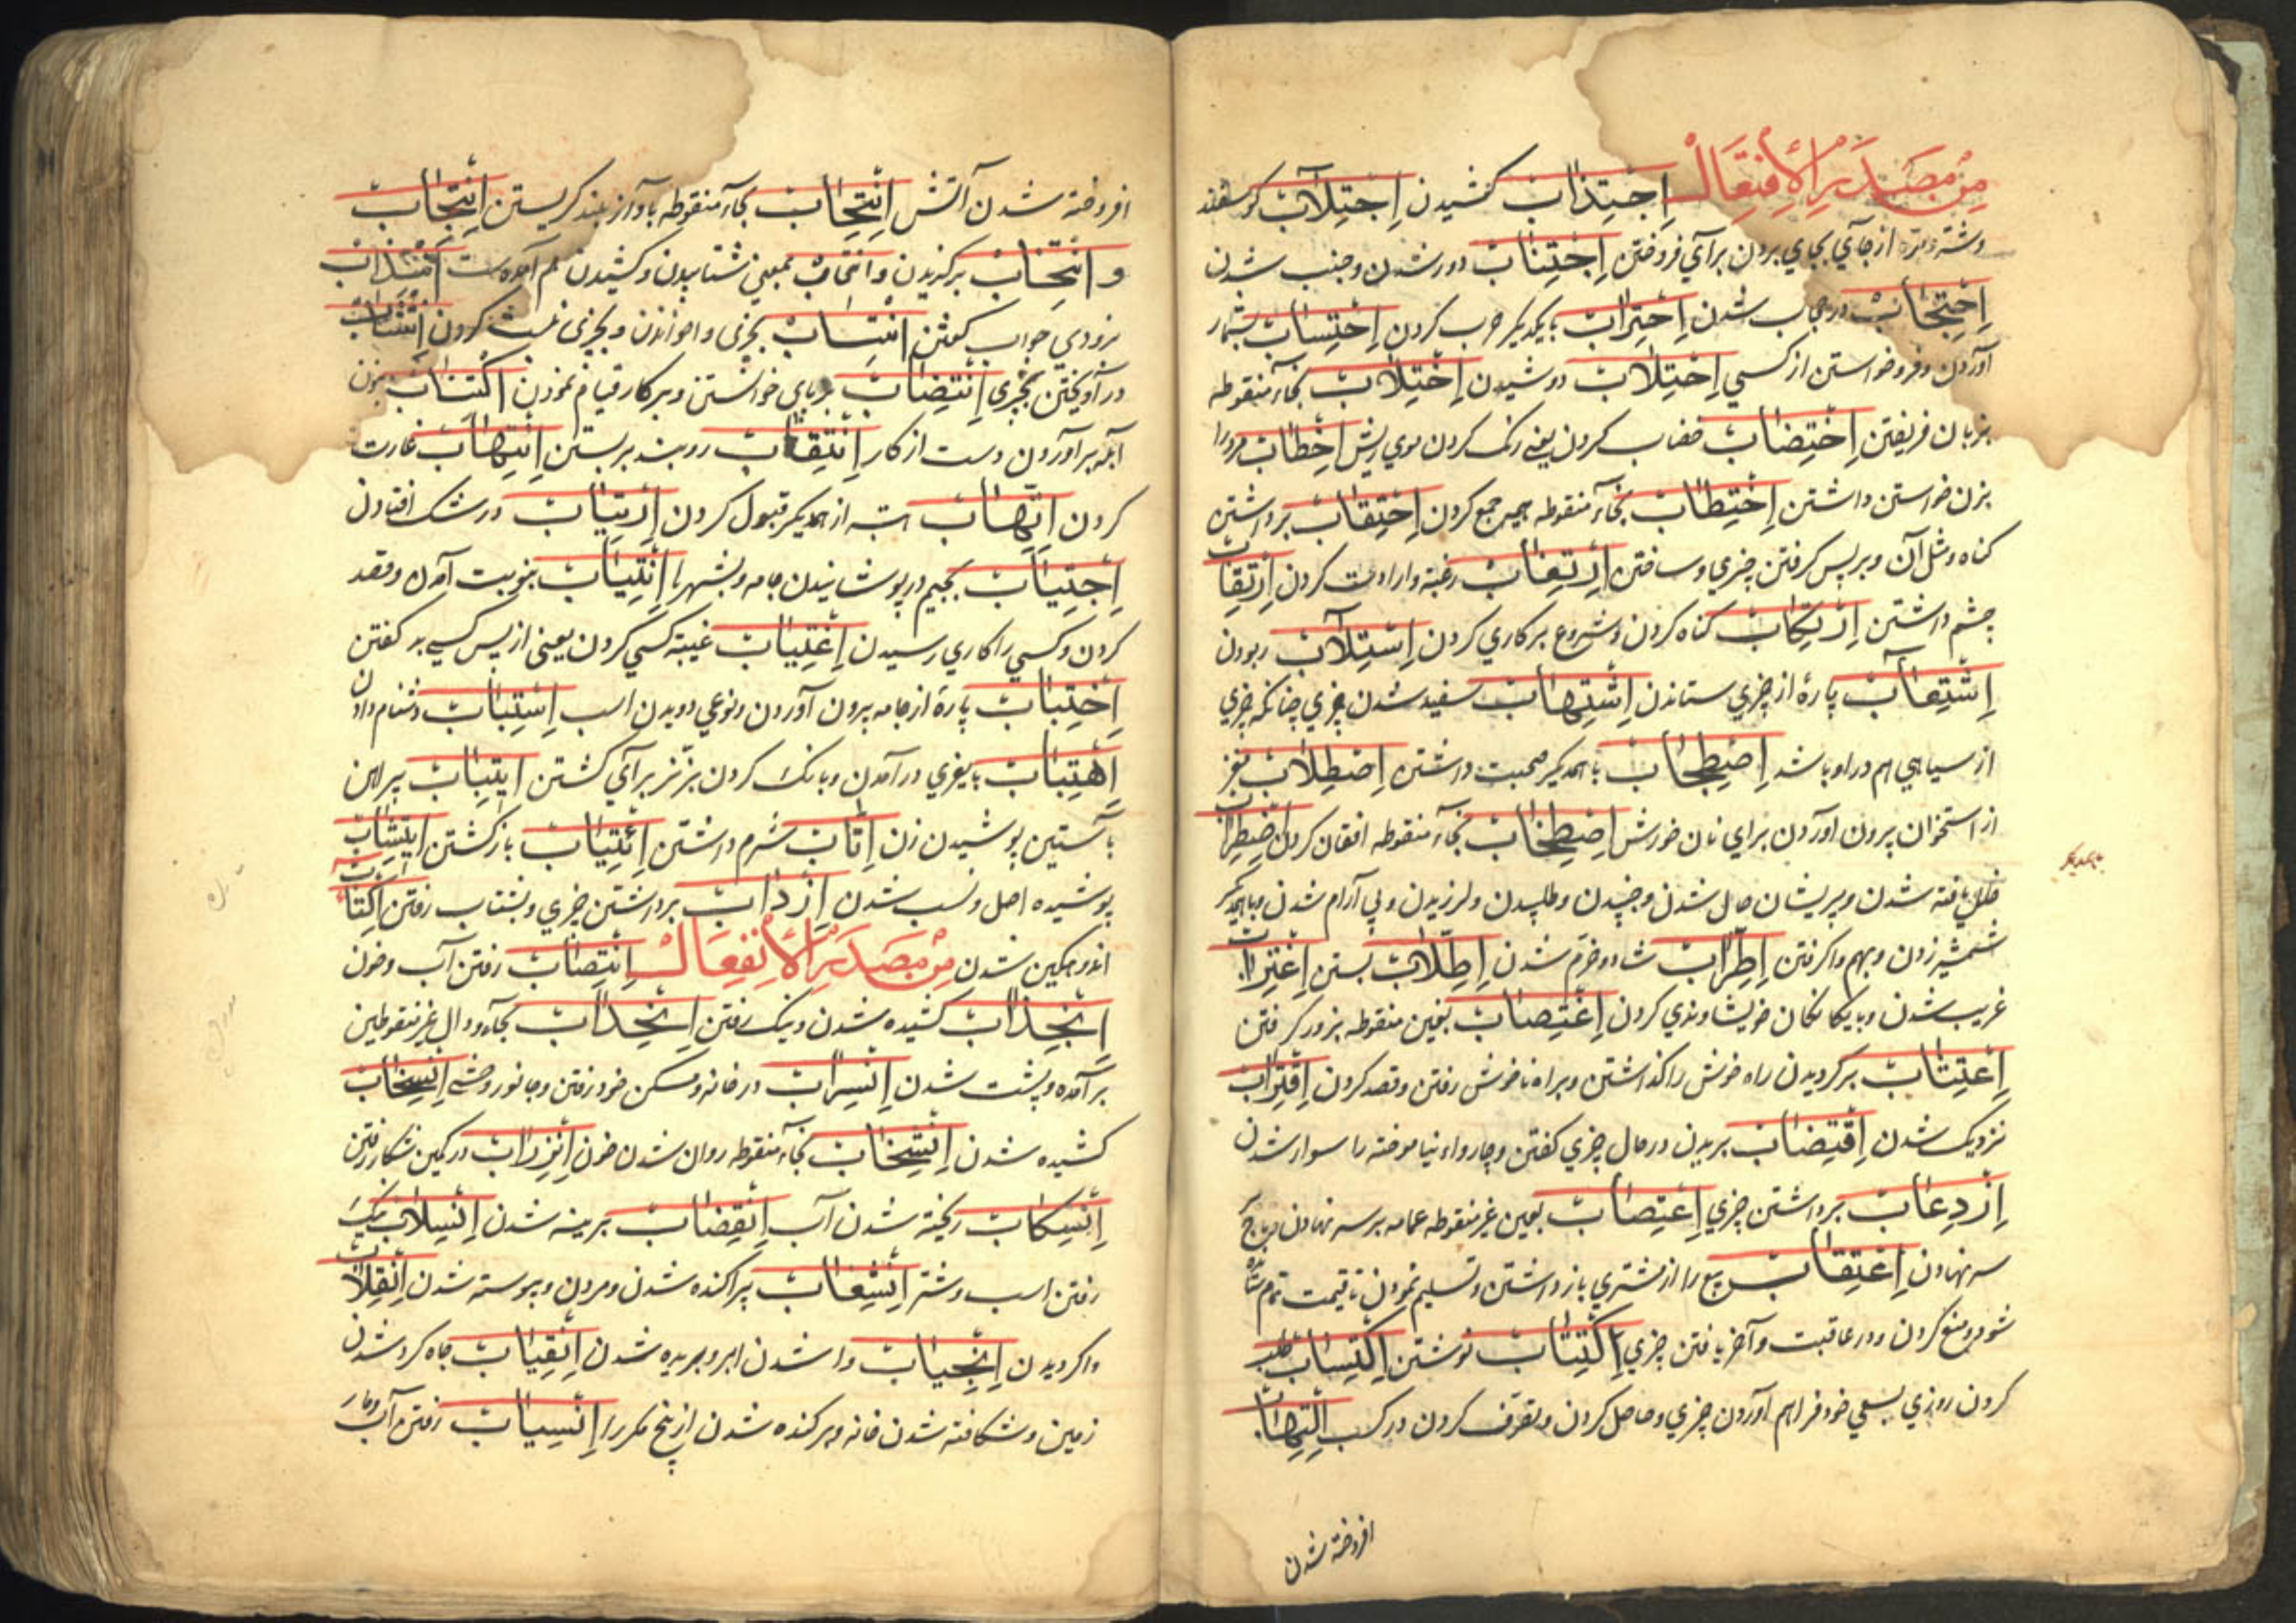 مِنْ مَصْدَرِ الْإِفْتِعَالْ اِجْتِذَابْ کشیدن اِجْتِلَآبْ کوسفند
وشتر و برده از جآي بجاي بردن برآي فروختن اِجْتِنَابْ دور شدن وجنب شدن
اِحْتِجَابْ در حجاب شدن اِحْتِرَابْ بایکدیکر حرب کردن اِحْتِسَابْ بشمار
آوردن و مزد خواستن از کسي اِحْتِلَابْ دوشیدن اِخْتِلَابْ بخآء منقوطه
بزبان فریفتن اِخْتِضَابْ خضاب کردن یعني رنک کردن موي ریش اِخْطَابْ مرد را
بزن خواستن داشتن اِخْتِطَابْ بخآء منقوطه هیمه جمع کردن اِحْتِقَابْ برداشتن
کناه و مثل آن و بر پس کرفتن چیزي و ساختن اِرْتِغَابْ رغبة و ارادت کردن اِرْتِقَابْ
چشم داشتن اِرْتِکَابْ کناه کردن و شروع بر کاري کردن اِسْتِلَآبْ ربودن
اِشْتِعَآبْ پارۀ از چیزي ستاندن اِشْتِهَابْ سفید شدن چیزي چنانکه چیزي
از سیاهي هم در او باشد اِصْطِحَابْ باهمدیکر صحبت داشتن اِصْطِلَابْ مغز
از استخوان بیرون آوردن براي نان خورش اِصْطِخَابْ بخآء منقوطه افغان کردن اِضْطِرَابْ
خلل یافته شدن و پریشان حال شدن و جنبیدن و طلپیدن و لرزیدن و بي آرام شدن و باهمدیکر
بیکدیکر
شمشیر زدن و بهم واکرفتن اِطِّرَابْ شاد و خرم شدن اِطِّلَابْ بستن اِغْتِرَابْ
غریب شدن و با بیکانکان خویشاوندي کردن اِغْتِصَابْ بغین منقوطه بزور کرفتن
اِعْتِتَابْ برکردیدن راه خوش را کذاشتن و براه ناخوش رفتن و قصد کردن اِقْتِرَابْ
نزدیک شدن اِقْتِضَابْ بریدن در حال چیزي کفتن و چارواء نیاموخته را سوار شدن
اِزْدِعَابْ برداشتن چیزي اِعْتِصَابْ بعین غیر منقوطه عمامه بر سر نهادن و تاج بر
سر نهادن اِعْتِقَابْ بیع را از مشتري باز داشتن و تسلیم نمودن تا قیمت تمام ستاند
شود و منع کردن و در عاقبت و آخر یافتن چیزي اِکْتِتَابْ نوشتن اِکْتِسَابْ طلب
کردن روزي بسعي خود فراهم آوردن چیزي و حاصل کردن و تصرف کردن در کسب اِلْتِهَابْ
افروخته شدن
افروخته شدن آتش اِنْتِحَابْ بحآء منقوطه بآواز بلند کریستن اِنْتِجَابْ
و اِنْتِخَابْ برکزیدن و بمعني شتابیدن و کشیدن هم آمده است
بزودي جواب کفتن اِنْتِسَابْ بچیزي وا خواندن و بچیزي نسبت کردن اِنْتِشَابْ
در آویختن بچیزي اِنْتِصَابْ بر پاي خواستن و بر کار قیام نمودن
آبله برآوردن دست از کار اِنْتِقَابْ روبند بربستن اِنْتِهَابْ غارت
کردن اِتِّهَابْ هبة از همدیکر قبول کردن اِرْتِیَابْ در شک افتادن
اِجْتِیَابْ بجیم در پوشانیدن جامه و بشهرها اِنْتِیَابْ بنوبت آمدن و قصد
کردن و کسي را کاري رسیدن اِغْتِیَابْ غیبة کسي کردن یعنی از پس کسي بد کفتن
اِخْتِبَابْ پارۀ از جامه بیرون آوردن و نوعي دویدن اسب اِسْتِبَابْ دشنام دادن
اِهْتِبَابْ بایغري در آمدن و بانک کردن بز نر برآي کشتن اِتِّبَابْ پیراهن
بآستین پوشیدن زن اِتَابْ شرم داشتن اِئْتِیَابْ باز کشتن اِیتِشَابْ
پوشیده اصل و نسب شدن اِزْدَابْ برداشتن چیزي و بشتاب رفتن اِکْتِئَابْ
اندوهکین شدن مِنْ مَصْدَرِ الْأِنْفِعَالْ اِنْتِصَابْ رفتن آب و خون
اِنْجِذَابْ کشیده شدن و نیک رفتن اِنْحِدَابْ بحآء و دال غیر منقوطین
برآمده و پشت شدن اِنْسِرَابْ در خانه و مسکن خود رفتن و جانور وحشي اِنْسِحَابْ
کشیده شدن اِنْشِخَابْ بخآء منقوطه روان شدن خون اِنْزِرَابْ در کمین شکار رفتن
اِنْسِکَابْ ریخته شدن آب اِنْقِضَابْ بریده شدن اِنْسِلَابْ نیک
رفتن اسب و شتر اِنْشِعَابْ پراکنده شدن و مردن و پیوسته شدن اِنْقِلَابْ
واکردیدن اِنْجِیَابْ وا شدن ابر و بریده شدن اِنْقِیَابْ چاه کرد شدن
زمین و شکافته شدن خانه و برکنده شدن از بیخ مکرر اِنْسِیَابْ رفتن آب و مار